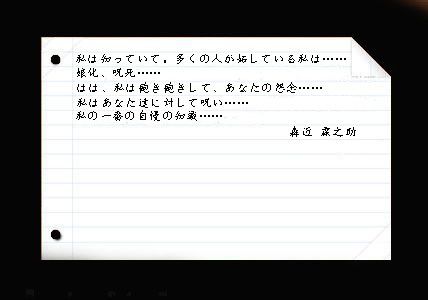 私は知っていて。多くの人が妬している私は……
娘化、呪死……
はは、私は飽き飽きして、あなたの怨念……
私はあなた達に対して呪い……
私の一番の自慢の知識……
森近 霖之助